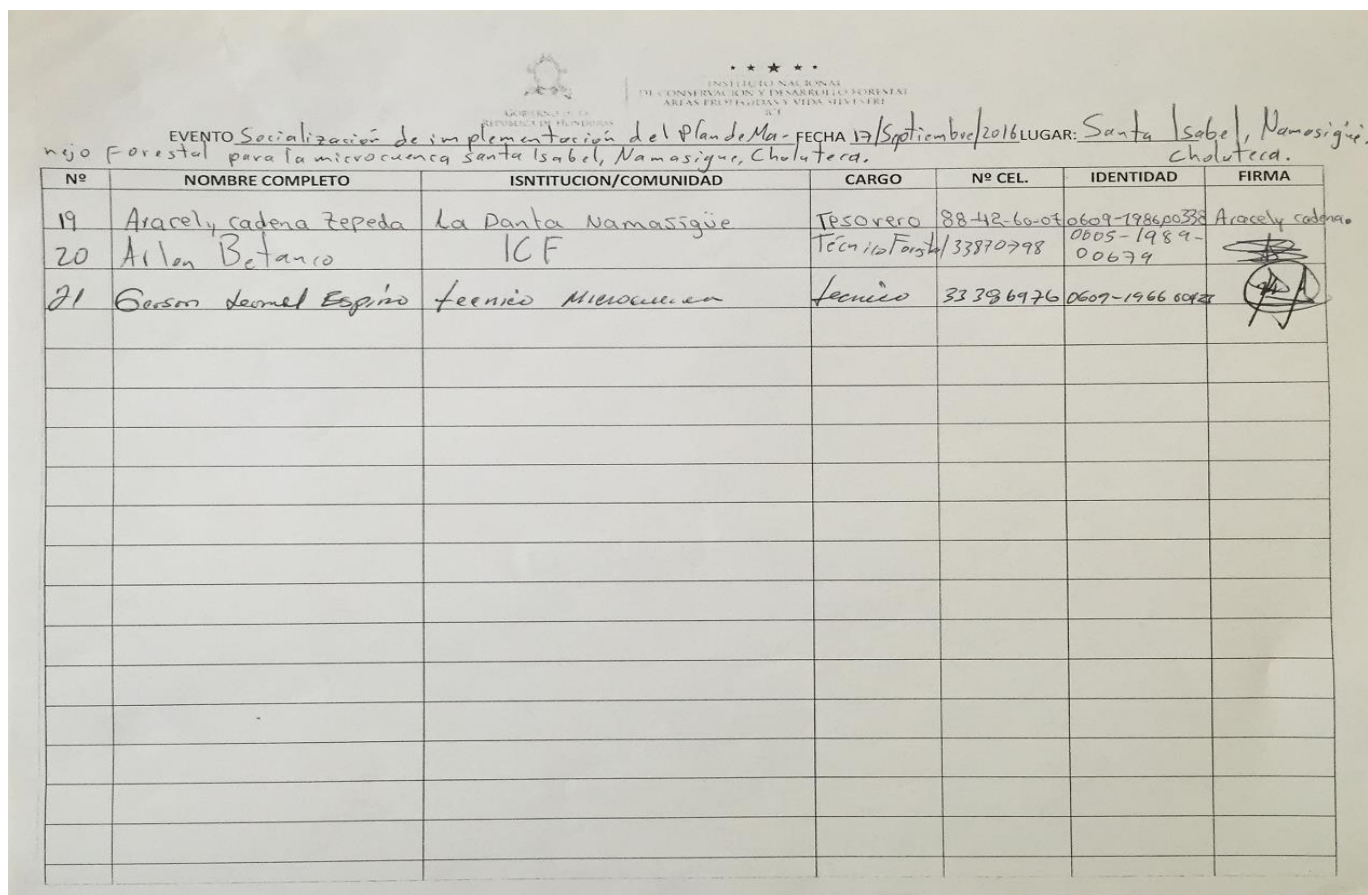 GOBIERNO DE LA
REPÚBLICA DE HONDURAS
★ ★ ★ ★ ★
INSTITUTO NACIONAL
DE CONSERVACIÓN Y DESARROLLO FORESTAL
ÁREAS PROTEGIDAS Y VIDA SILVESTRE
ICF
EVENTO Socialización de implementación del Plan de Ma- FECHA 17/Septiembre/2016 LUGAR: Santa Isabel, Namasigüe.
nejo Forestal para la microcuenca santa Isabel, Namasigue, Choluteca. Choluteca.
Nº NOMBRE COMPLETO ISNTITUCION/COMUNIDAD CARGO Nº CEL. IDENTIDAD FIRMA
19 Aracely cadena Zepeda La Danta Namasigüe Tesorero 88-42-60-07 0609-198600338 Aracely cadena
20 Arlon Betanco ICF Técnico Forestal 33870798 0605-1989-
00679
21 Gerson Leonel Espino tecnico Microcuenca tecnico 33386976 0609-1966